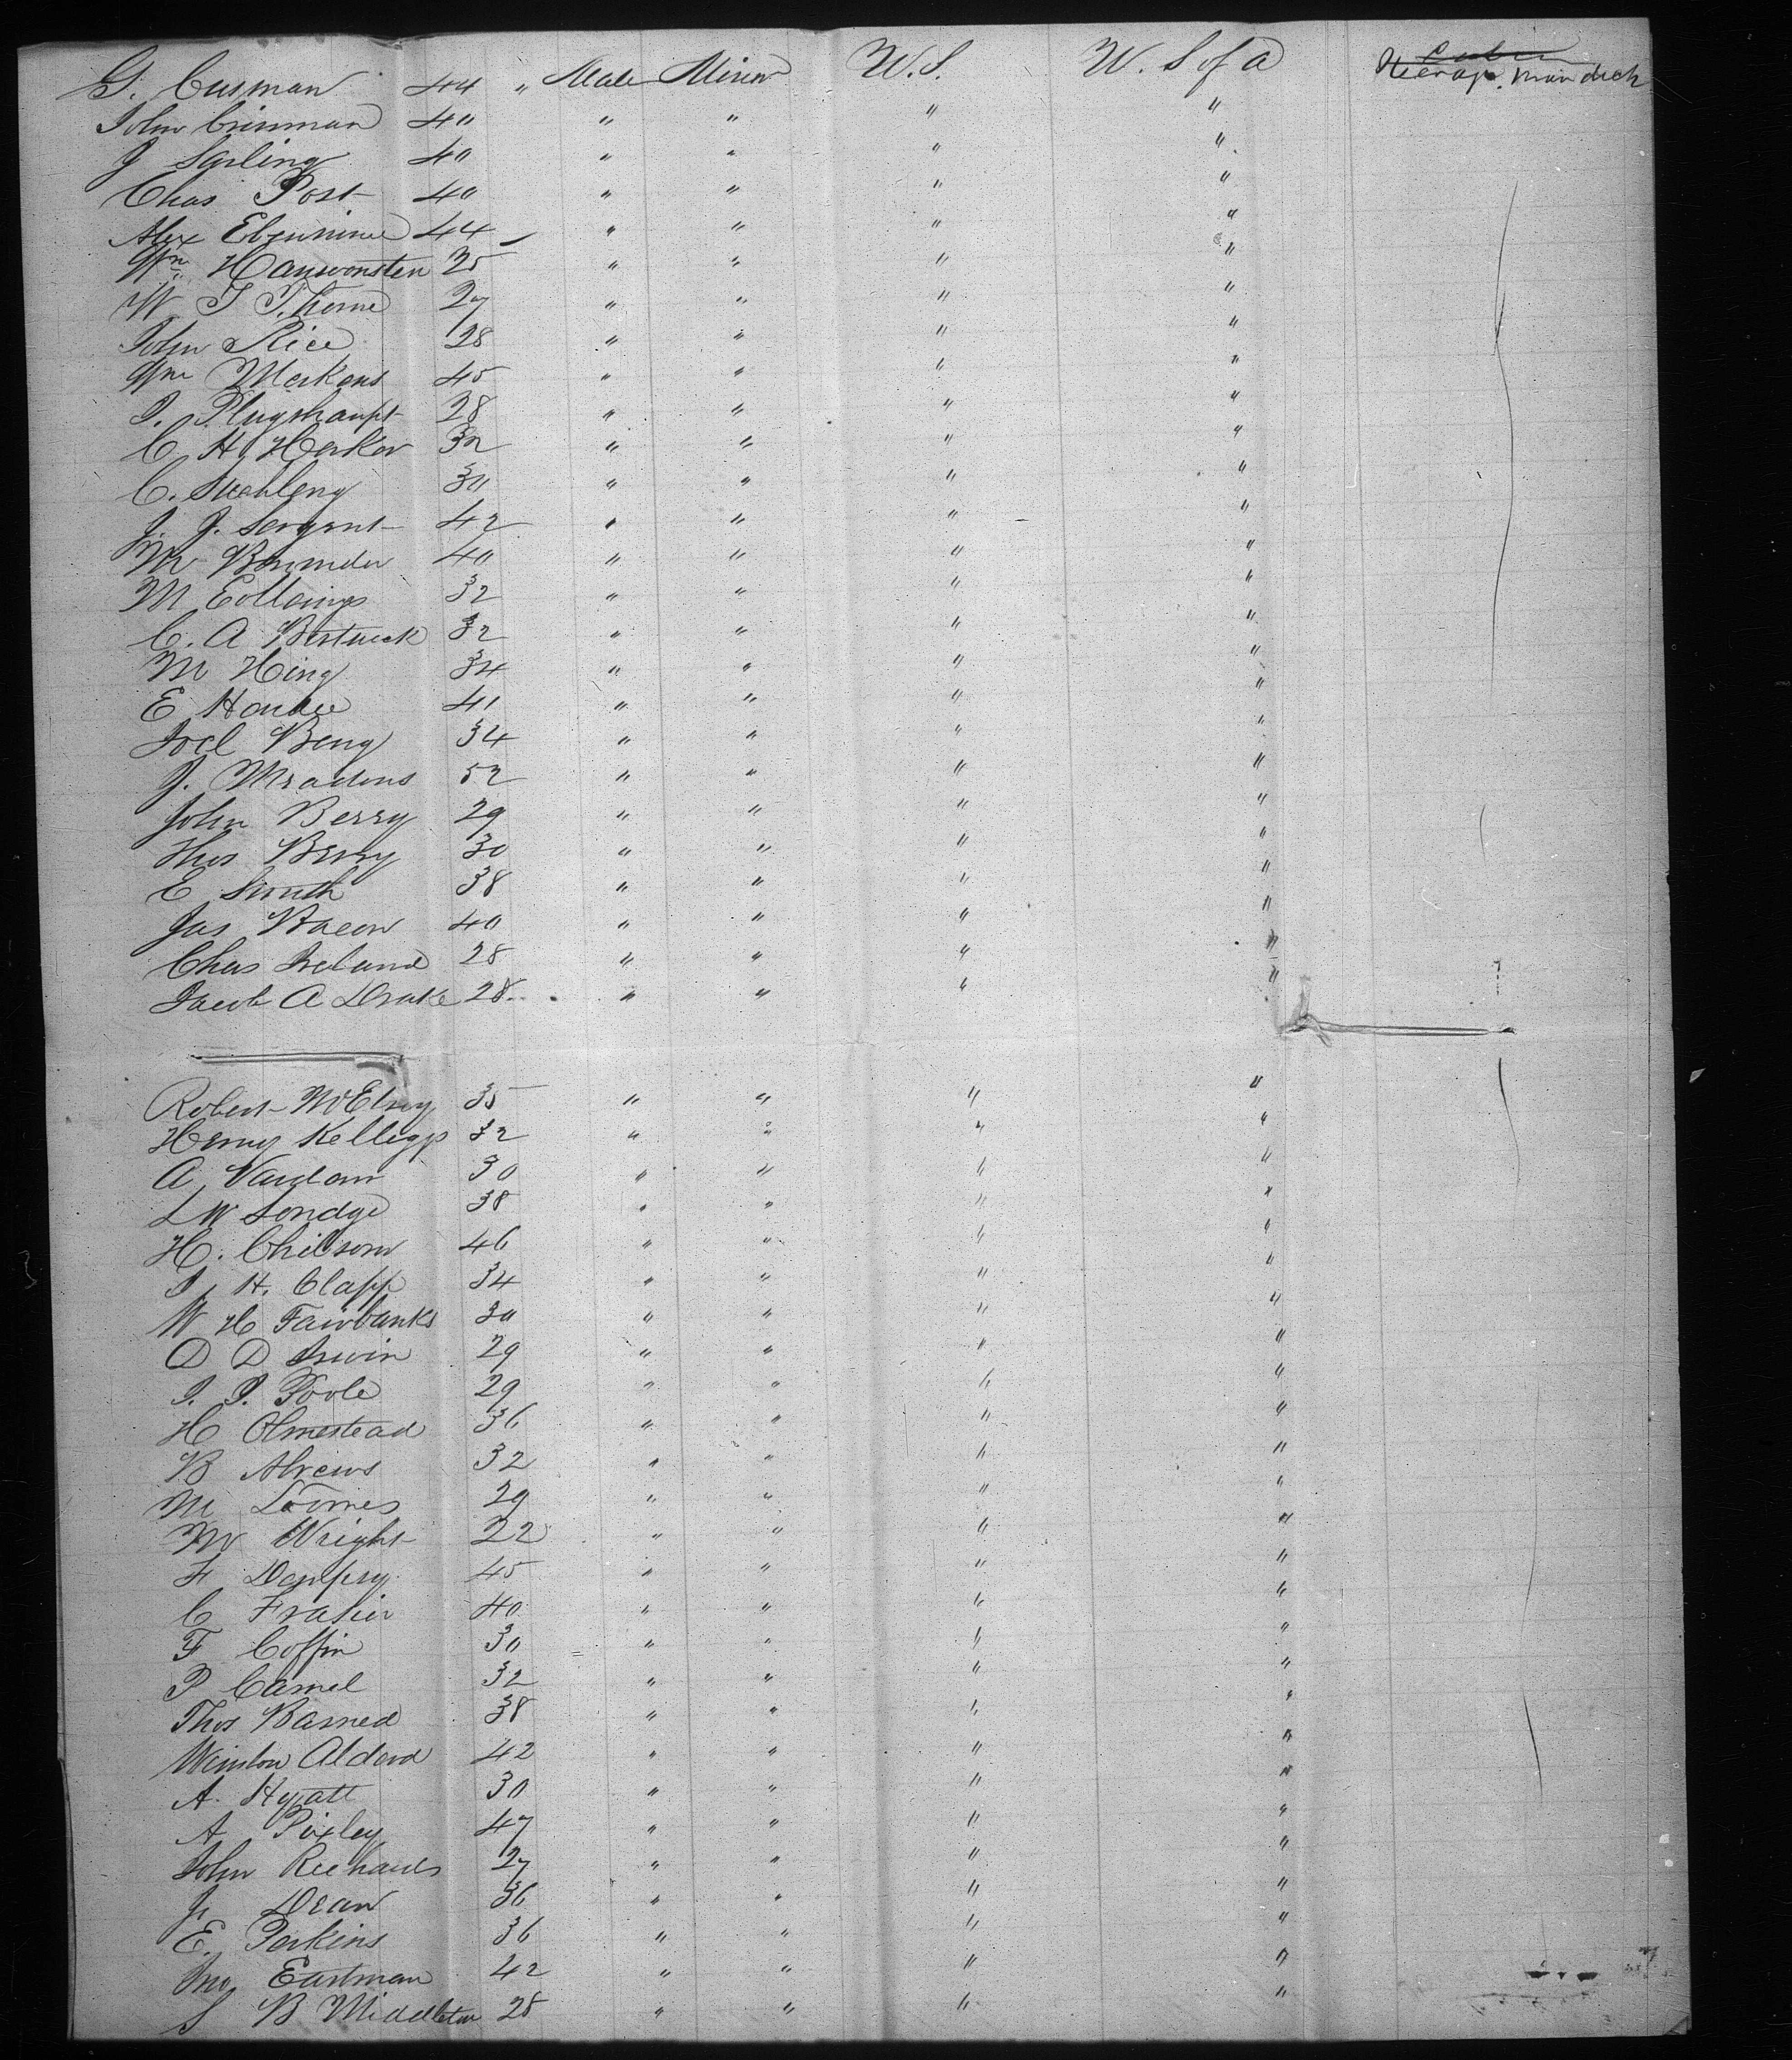 G. Cusman 44 " Male Miner U.S. U. S of A
John Crisman 40 " " " "
J Sarling 40 " " " "
Chas Post 40 " " " "
Alex 44 " " " "
Wm 25 " " " "
W T Thorne 27 " " " "
John Rice 28 " " " "
Wm Merkens 45 " " " "
J. Plugshaupt 28 " " " "
C H Harker 32 " " " "
C. 30 " " " "
J. J. Sergent 42 " " " "
M 40 " " " "
M Collings 32 " " " "
C. A Bostwick 32 " " " "
M King 34 " " " "
E 41 " " " "
Joel Beng 34 " " " "
J. Meadows 52 " " " "
John Berry 29 " " " "
Thos Berry 30 " " " "
E Smith 38 " " " "
Jas Bacon 40 " " " "
Chas Ireland 28 " " " "
Jacob A Drake 28 " " " "
Robert McElroy 35 " " " "
Henry Kellogg 32 " " " "
A Vandam 30 " " " "
L W Sondge 38 " " " "
H. Chilson 46 " " " "
J H. Clapp 34 " " " "
W H Fairbanks 30 " " " "
D D Irwin 29 " " " "
J. J. Poole 29 " " " "
H Olmestead 36 " " " "
B Abrews 32 " " " "
M Loomes 29 " " " "
M Wright 22 " " " "
F Dempsy 45 " " " "
C Frasier 40 " " " "
F Coffin 30 " " " "
P Camel 32 " " " "
Thos Barned 38 " " " "
Winslow Alderd 42 " " " "
A. Hyatt 30 " " " "
A Pixley 47 " " " "
John Reehards 27 " " " "
J. Dean 36 " " " "
E. Perkins 36 " " " "
Jno Eastman 42 " " " "
S B Middleton 28 " " " "